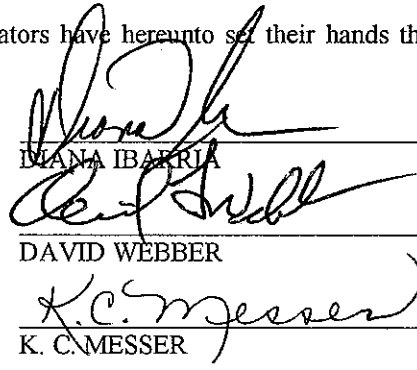 ators have hereunto set their hands th
Diana I
DIANA IBARRIA
David Webber
DAVID WEBBER
K.C. Messer
K. C. MESSER